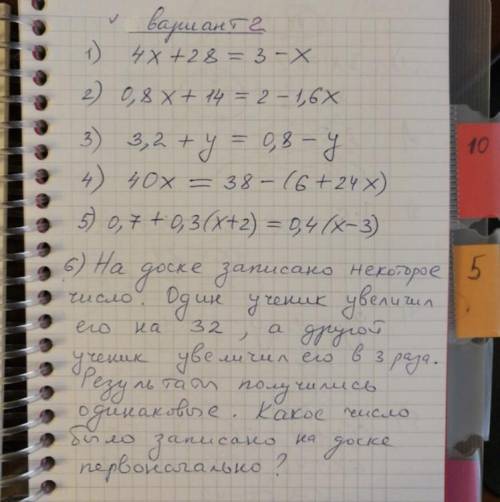 вариант 2
1) 4x + 28 = 3 - x
2) 0,8x + 14 = 2 - 1,6x
3) 3,2 + y = 0,8 - y
4) 40x = 38 - (6 + 24x)
5) 0,7 + 0,3(x+2) = 0,4(x-3)
6) На доске записано некоторое
число. Один ученик увеличил
его на 32, а другой
ученик увеличил его в 3 раза.
Результаты получились
одинаковые. Какое число
было записано на доске
первоначально?
10
5